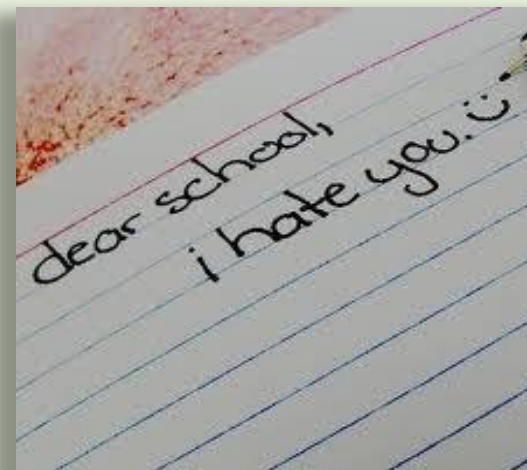 dear school,
i hate you. ü